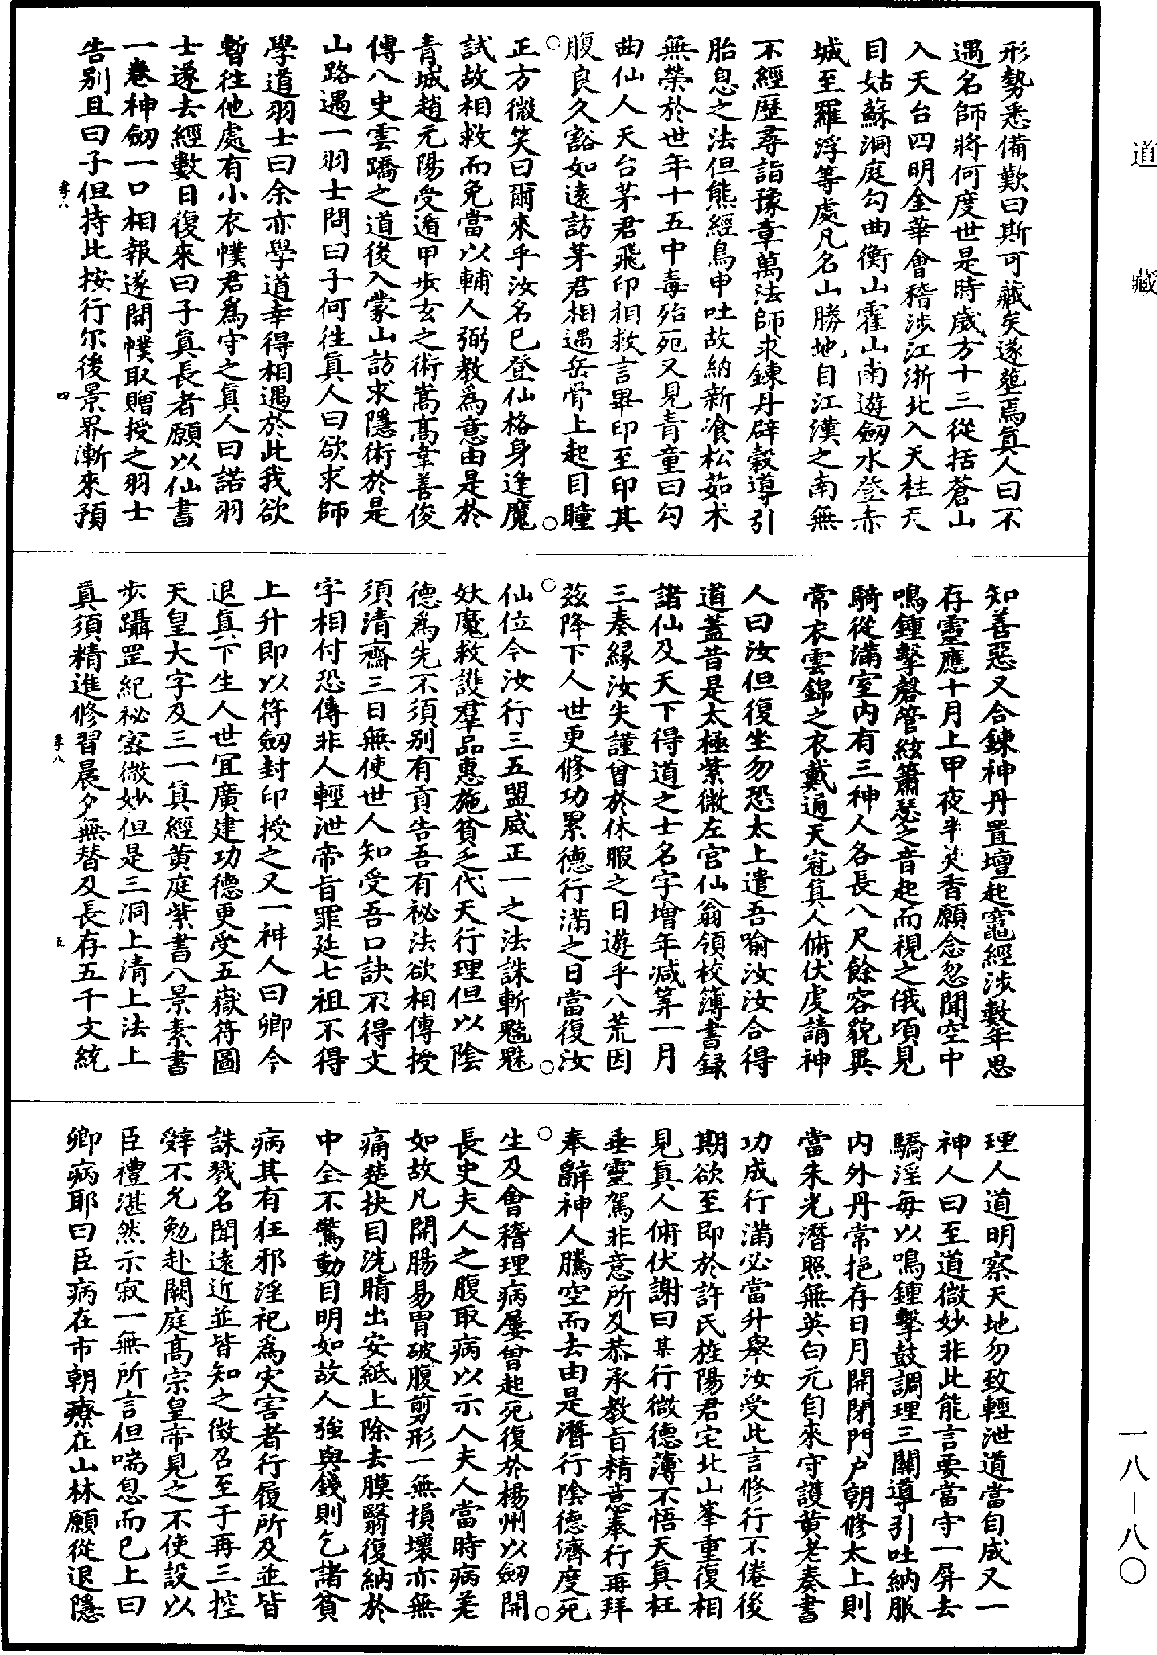 道藏
形勢悉備歎曰斯可藏矣遂塟焉真人曰不
遇名師將何度世是時歲方十三從括蒼山
入天台四明金華會稽涉江浙北入天柱天
目姑蘇洞庭勾曲衡山霍山南遊劒水登赤
城至羅浮等處凡名山勝地自江漢之南無
不經歷尋詣豫章萬法師求鍊丹辟穀導引
胎息之法但熊經鳥申吐故納新飡松茹术
無榮於世年十五中毒殆死又見青童曰勾
曲仙人天台茅君飛印相救言畢印至印其
腹良久豁如遠訪茅君相遇岳骨上起目瞳
正方微笑曰爾來乎汝名已登仙格身逢魔
試故相救而免當以輔人弼教為意由是於
青城趙元陽受遁甲步玄之術嵩髙韋善俊
傳八史雲蹻之道後入蒙山訪求隱術於是
山路遇一羽士問曰子何往真人曰欲求師
學道羽士曰余亦學道幸得相遇於此我欲
暫往他處有小衣幞君爲守之真人曰諾羽
士遂去經數日復來曰子真長者願以仙書
一卷神劒一口相報遂開幞取贈授之羽士
告別且曰子但持此按行尔後景界漸來預
孝八
四
知善惡又合鍊神丹置壇起竈經涉數年思
存靈應十月上甲夜半焚香願念忽聞空中
鳴鍾擊磬管絃簫瑟之音起而視之俄頃見
騎從滿室内有三神人各長八尺餘容貌異
常衣雲錦之衣戴通天冠真人俯伏虔請神
人曰汝但復坐勿恐太上遣吾喻汝汝合得
道蓋昔是太極紫微左宫仙翁領校簿書録
諸仙及天下得道之士名字增年减筭一月
三奏緣汝失謹曾於休暇之日遊乎八荒因
茲降下人世更修功累德行滿之日當復汝
仙位今汝行三五盟威正一之法誅斬魑魅
妖魔救護羣品惠施貧乏代天行理但以陰
德為先不須別有貢告吾有祕法欲相傳授
須清齋三日無使世人知受吾口訣不得文
字相付恐傳非人輕泄帝旨罪延七祖不得
上升即以符劒封印授之又一神人曰卿今
退真下生人世宜廣建功德更受五嶽符圖
天皇大字及三一真經黄庭紫書八景素書
步躡罡紀祕密微妙但是三洞上清上法上
真須精進修習晨夕無替及長存五千文統
孝八
五
理人道明察天地勿致輕泄道當自成又一
神人曰至道微妙非此能言要當守一屏去
驕淫每以鳴鍾擊鼓調理三關導引吐納服
内外丹常挹存日月開閉門户朝修太上則
當朱光潛照無英白元自來守護黄老奏書
功成行滿必當升舉汝受此言修行不倦後
期欲至即於許氏旌陽君宅北山峯重復相
見真人俯伏謝曰某行微德薄不悟天真枉
垂靈駕非意所及恭承教旨精意奉行再拜
奉辭神人騰空而去由是潛行陰德濟度死
生及會稽理病屢曾起死復於楊州以劒開
長史夫人之腹取病以示人夫人當時病差
如故凡開腸易胃破腹剪形一無損壞亦無
痛楚抉目洗睛出安紙上除去膜翳復納於
中全不驚動目明如故人強與錢則乞諸貧
病其有狂邪淫祀為灾害者行履所及並皆
誅戮名聞遠近並皆知之徵召至于再三控
辭不允勉赴闕庭髙宗皇帝見之不使設以
臣禮湛然示寂一無所言但喘息而已上曰
卿病耶曰臣病在市朝療在山林願從退隱
一八—八〇